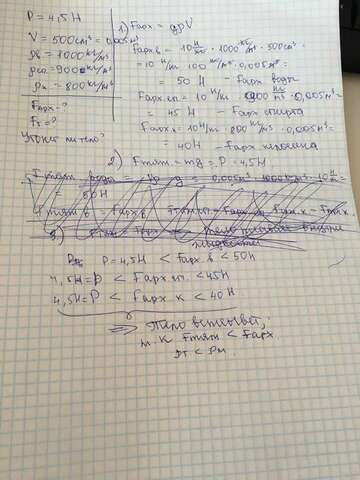 P = 4,5 Н
V = 500 см³ = 0,005 м³
ρв = 1000 кг/м³
ρсп = 900 кг/м³
ρк = 800 кг/м³
Fарх - ?
Fт - ?
Утонет ли тело?
1) Fарх = gρV
Fарх в = 10 Н/кг · 1000 кг/м³ · 500 см³ =
= 10 Н · 1000 кг/м³ · 0,005 м³ =
= 50 Н - Fарх воды
Fарх сп. = 10 Н/кг · 900 кг/м³ · 0,005 м³ =
= 45 Н - Fарх спирта
Fарх к = 10 Н/кг · 800 кг/м³ · 0,005 м³ =
= 40 Н - Fарх керосина
2) Fтяж = mg = P = 4,5 Н
= 50 Н
3)
P = 4,5 Н < Fарх. в < 50 Н
4,5 Н = P < Fарх сп. < 45 Н
4,5 Н = P < Fарх к < 40 Н
⇒ Тело всплывёт,
т. к Fтяж < Fарх.
ρт < ρж.